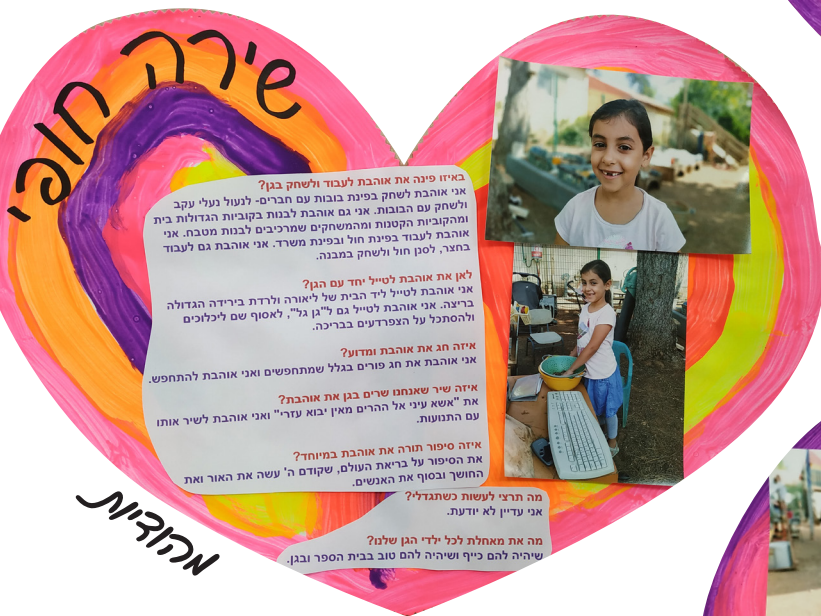 שירה חופי
באיזו פינה את אוהבת לעבוד ולשחק בגן?
אני אוהבת לשחק בפינת בובות עם חברים- לנעול נעלי עקב
ולשחק עם הבובות. אני גם אוהבת לבנות בקוביות הגדולות בית
ומהקוביות הקטנות ומהמשחקים שמרכיבים לבנות מטבח. אני
אוהבת לעבוד בפינת חול ובפינת משרד. אני אוהבת גם לעבוד
בחצר, לסנן חול ולשחק במבנה.
לאן את אוהבת לטייל יחד עם הגן?
אני אוהבת לטייל ליד הבית של ליאורה ולרדת בירידה הגדולה
בריצה. אני אוהבת לטייל גם ל"גן גל", לאסוף שם ליכלוכים
ולהסתכל על הצפרדעים בבריכה.
איזה חג את אוהבת ומדוע?
אני אוהבת את חג פורים בגלל שמתחפשים ואני אוהבת להתחפש.
איזה שיר שאנחנו שרים בגן את אוהבת?
את "אשא עיני אל ההרים מאין יבוא עזרי" ואני אוהבת לשיר אותו
עם התנועות.
איזה סיפור תורה את אוהבת במיוחד?
את הסיפור על בריאת העולם, שקודם ה' עשה את האור ואת
החושך ובסוף את האנשים.
מה תרצי לעשות כשתגדלי?
אני עדיין לא יודעת.
מה את מאחלת לכל ילדי הגן שלנו?
שיהיה להם כייף ושיהיה להם טוב בבית הספר ובגן.
מהודיות